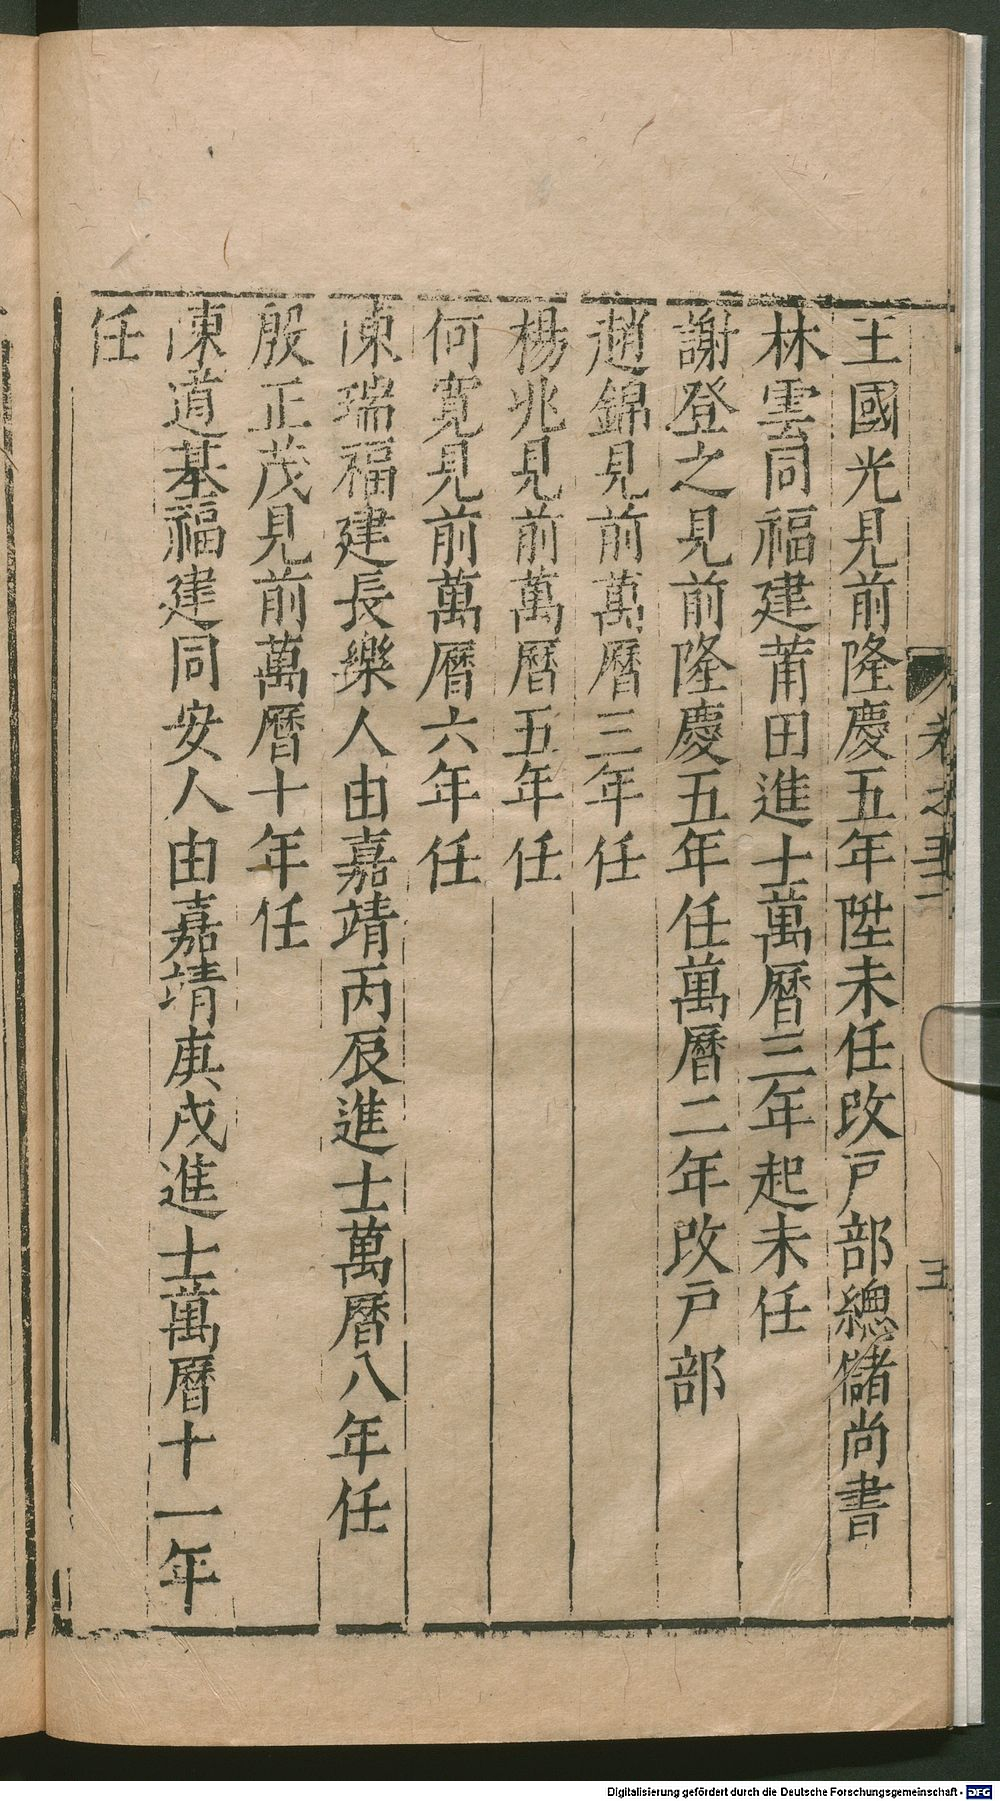 王國光見前隆慶五年陞未任改戸部總儲尚書
林雲同福建莆田進士萬曆三年起未任
謝登之見前隆慶五年任萬曆二年改戸部
趙錦見前萬曆三年任
楊兆見前萬曆五年任
何寬見前萬曆六年任
陳瑞福建長樂人由嘉靖丙辰進士萬曆八年任
殷正茂見前萬曆十年任
陳道基福建同安人由嘉靖庚戌進士萬曆十一年
任
卷之
三
Digitalisierung gefördert durch die Deutsche Forschungsgemeinschaft - DFG